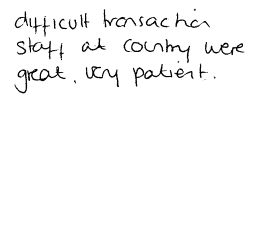 difficult transaction
staff at country were
great, very patient.